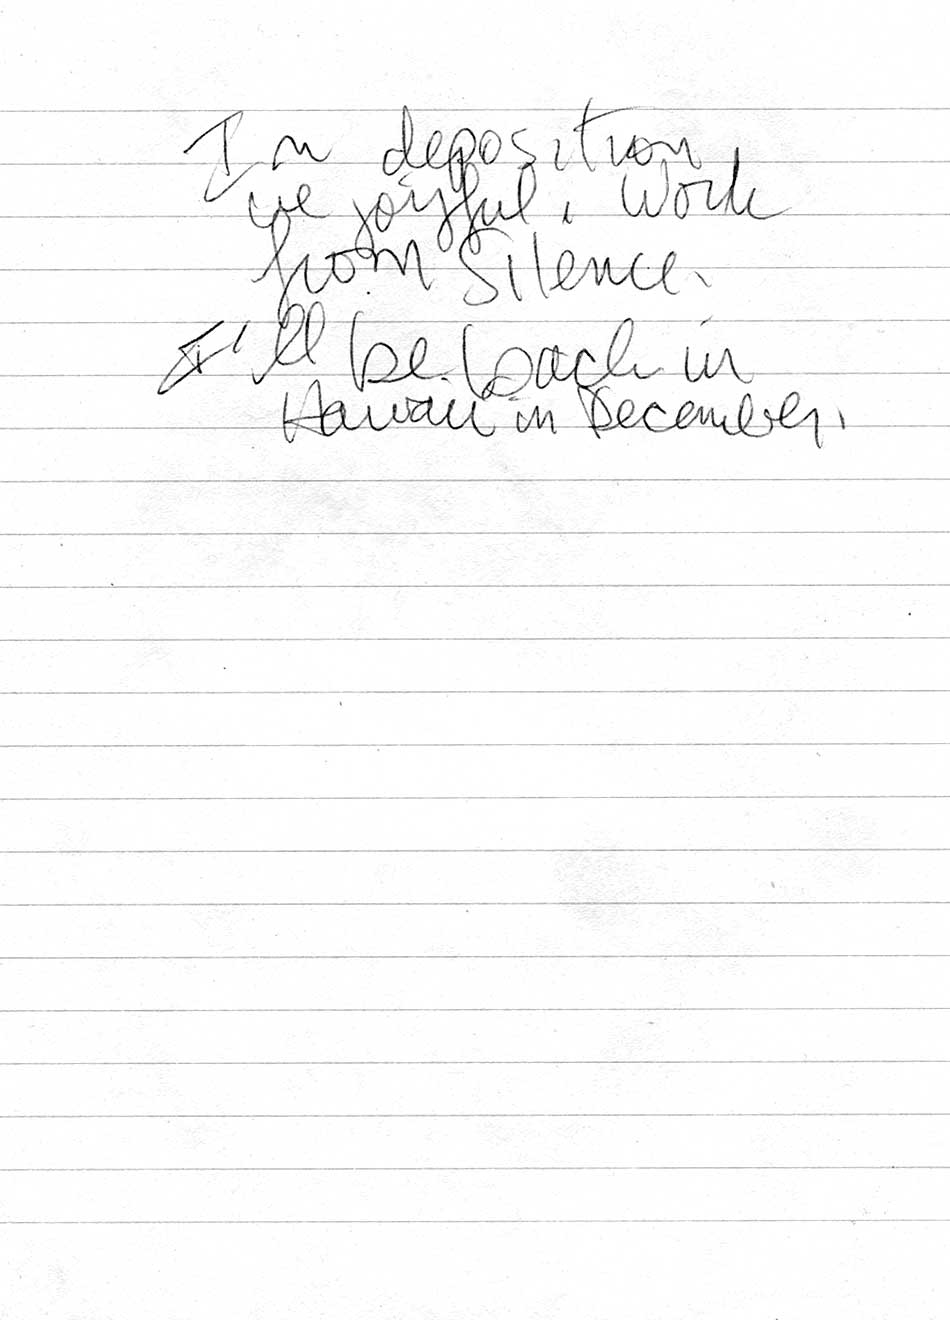 In deposition,
we joyful. Work
from Silence.
I'll be back in
Hawaii in December.